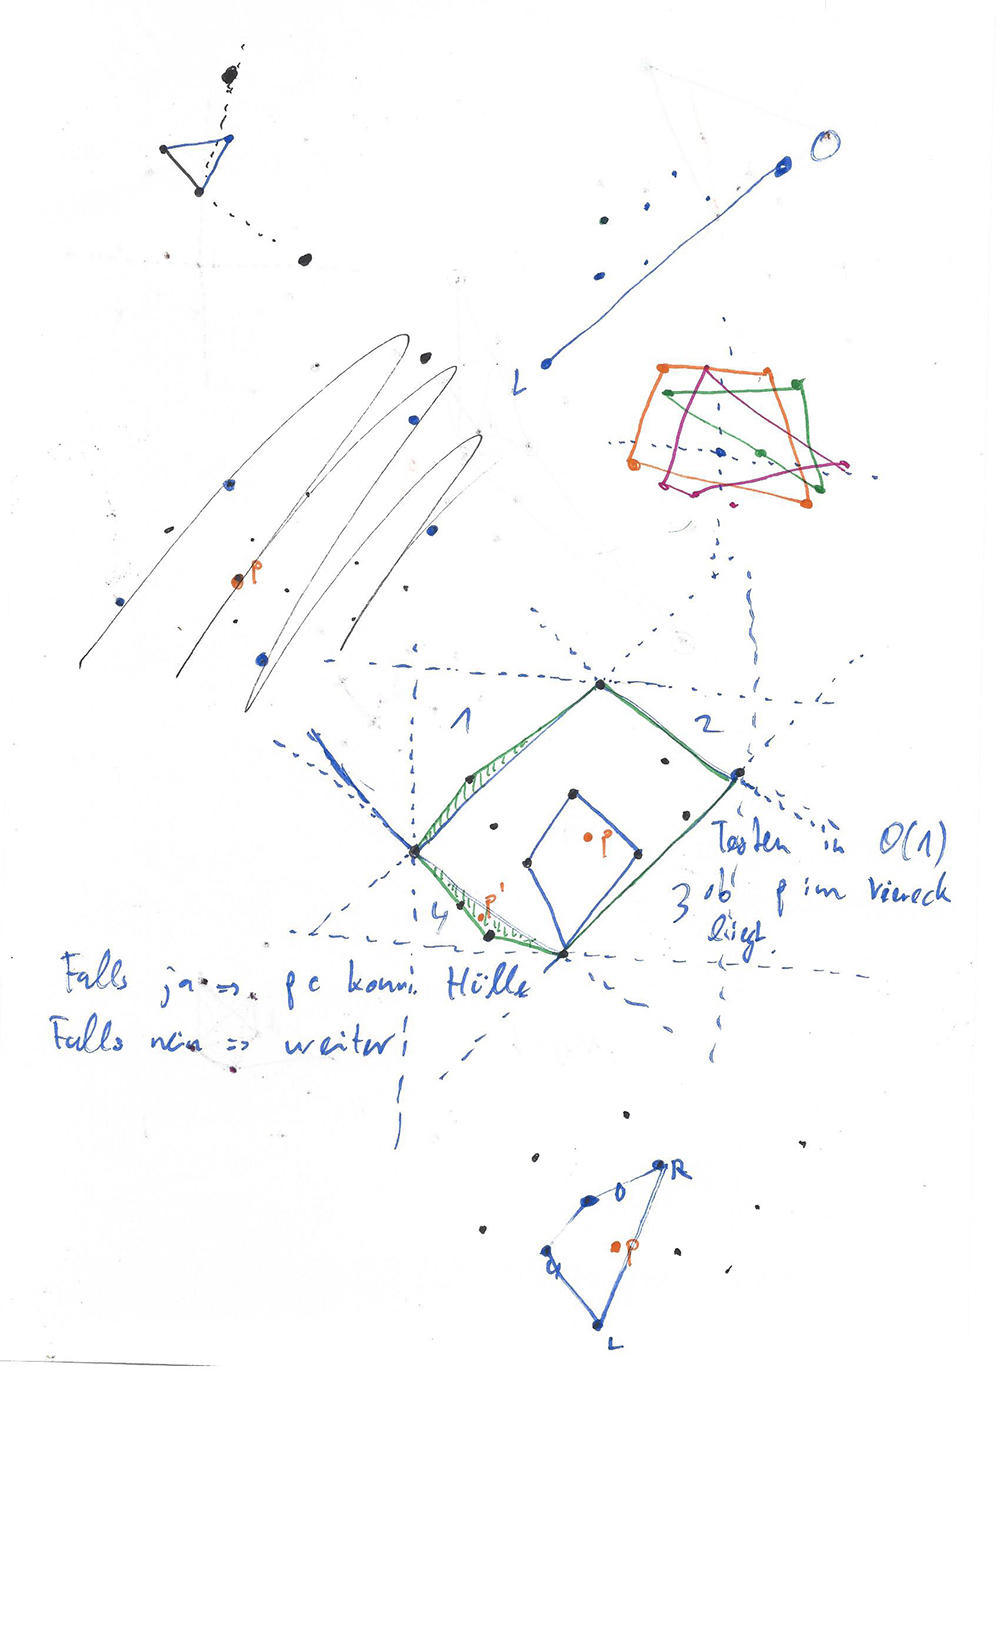 L
p
1
2
Testen in O(1)
3 ob p im Viereck
liegt.
p
p'
4
Falls ja => p ∈ konv. Hülle
Falls nein => weiter!
R
O
p
L